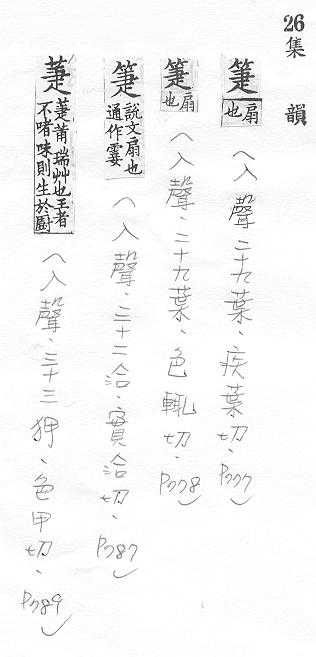 26 集韻
箑 扇也 (入聲二十九葉、疾葉切、P777)
箑 扇也 (入聲、二十九葉、色輒切、P778)
箑 說文扇也通作翣 (入聲、三十二洽、實洽切、P787)
萐 萐莆瑞艸也王者不嗜味則生於廚 (入聲、三十三狎、色甲切、P789)